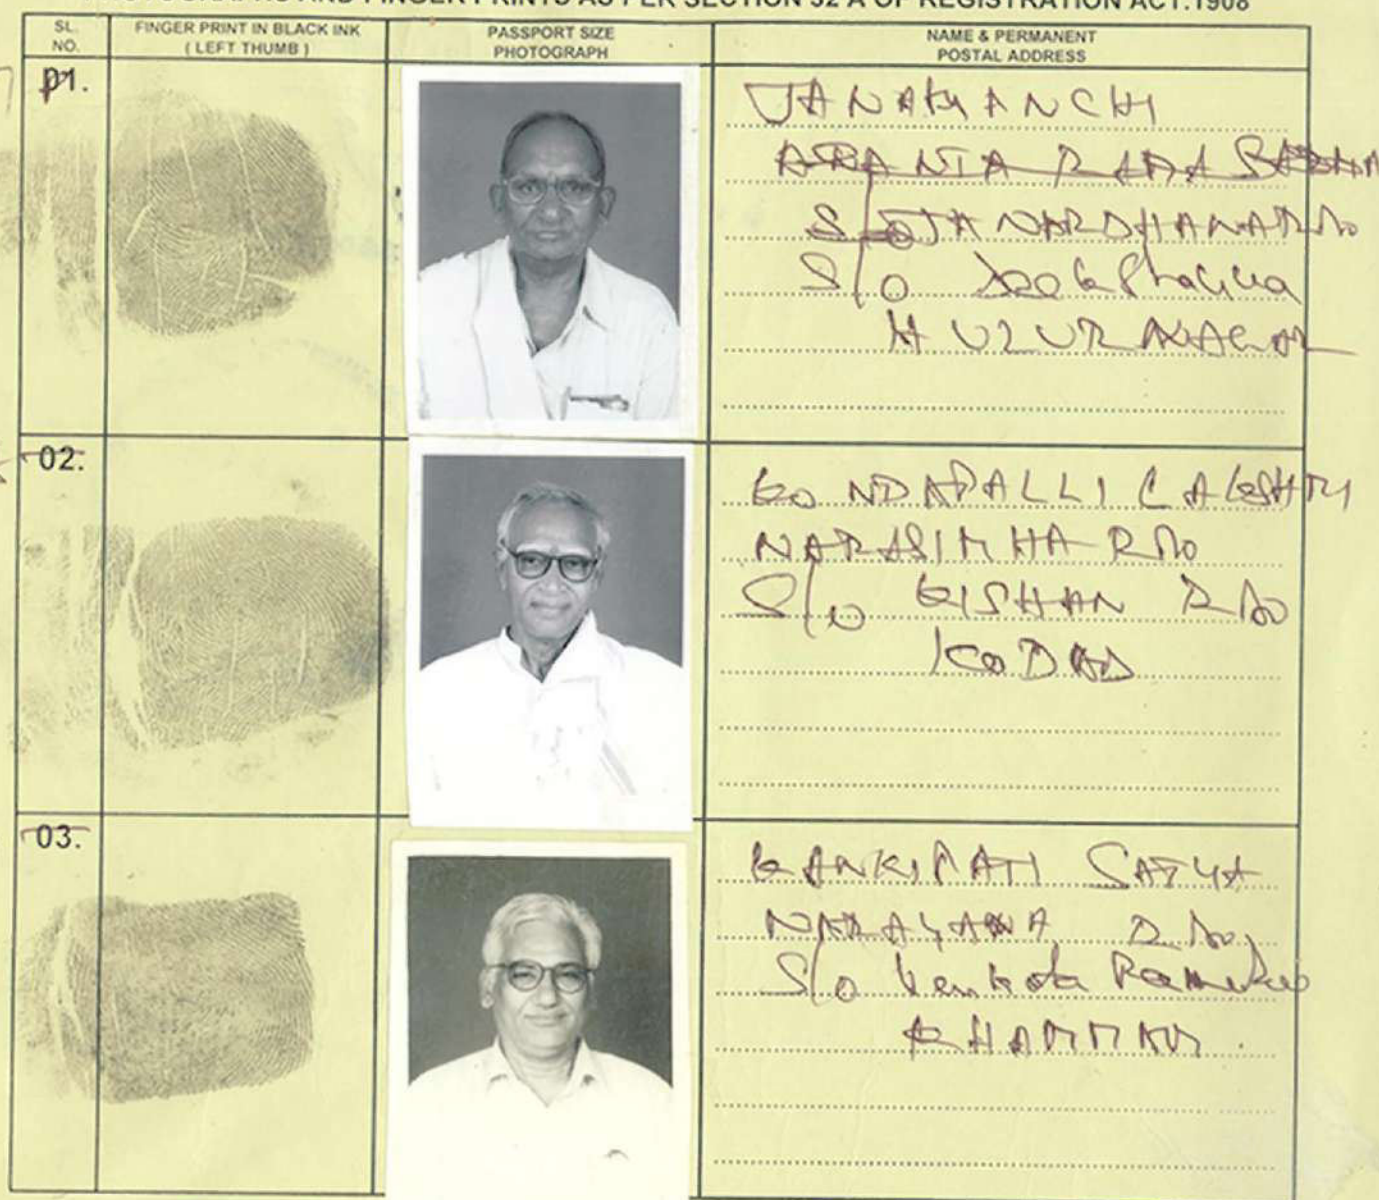 PHOTOGRAPHS AND FINGER PRINTS AS PER SECTION 32 A OF REGISTRATION ACT.1908
SL. NO.
FINGER PRINT IN BLACK INK
( LEFT THUMB )
PASSPORT SIZE
PHOTOGRAPH
NAME & PERMANENT
POSTAL ADDRESS
01.
S/o JANARDHANARAO
S/o
HUZUR NAGAR
02.
KONDAPALLI LAKSHMI
NARASIMHA RAO
S/o KISHAN RAO
KODAD
03.
KANKIPATI SATYA
NARAYANA RAO,
S/o Venkata
KHAMMAM.